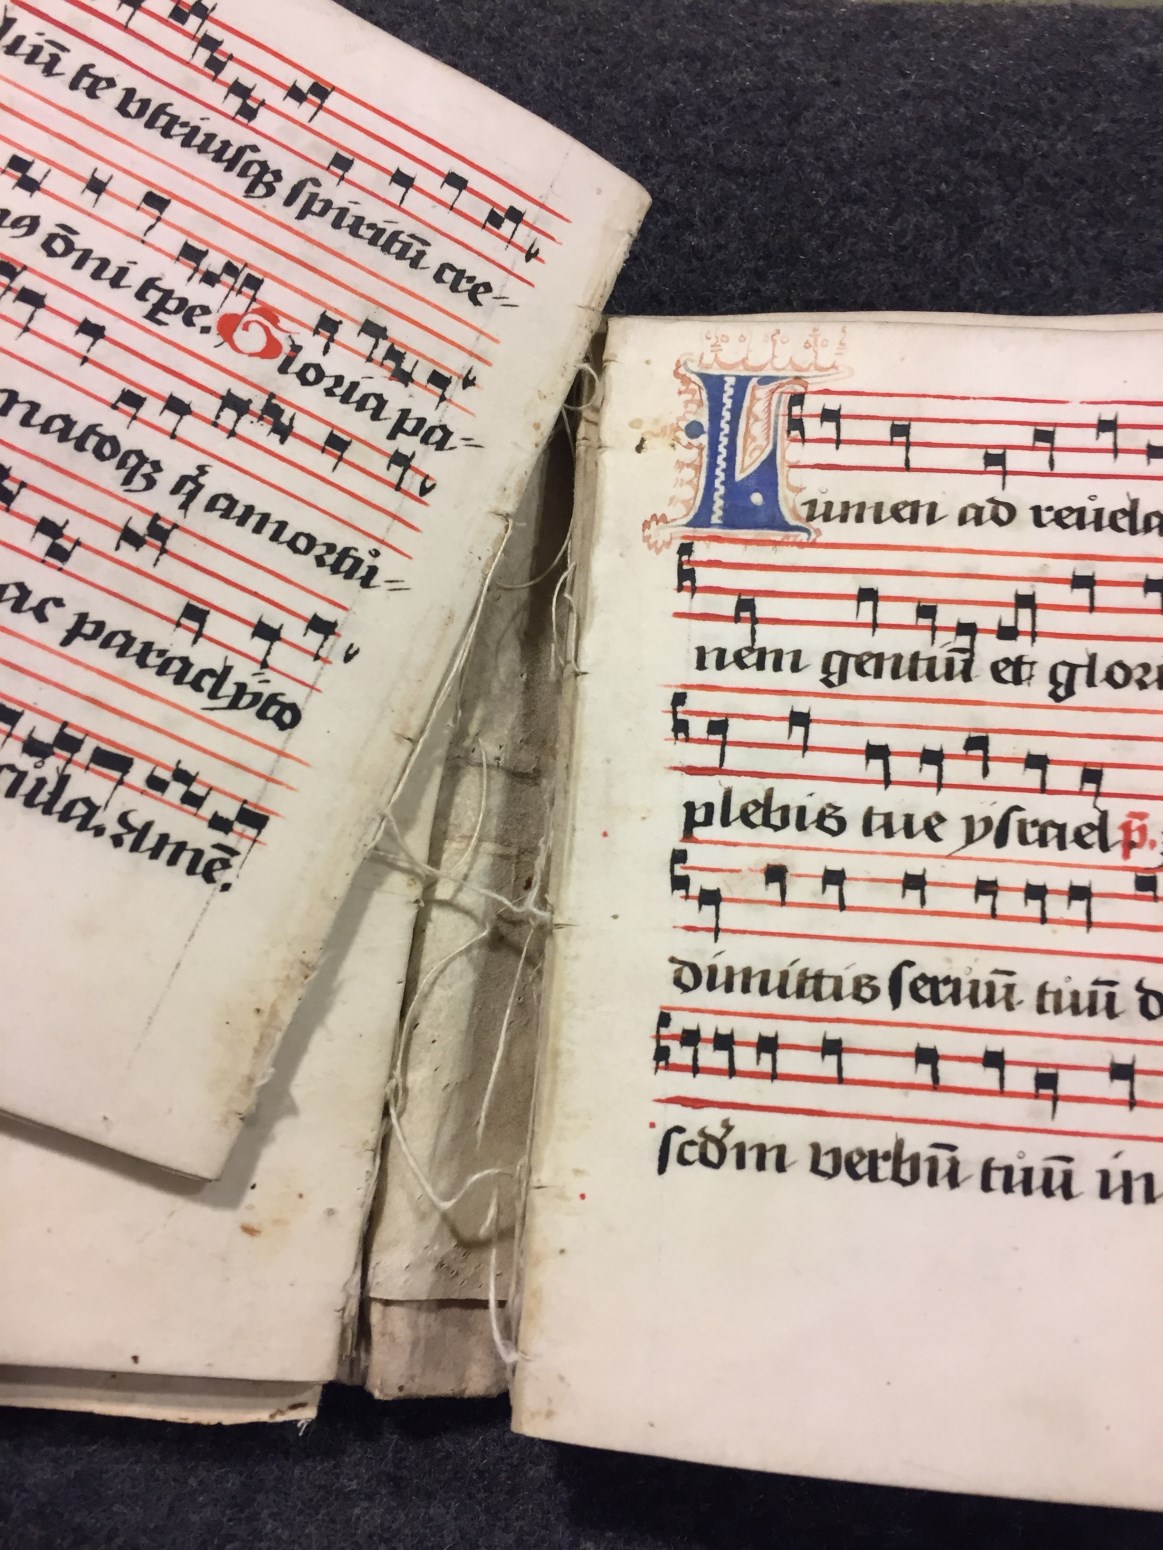 te vtriusqꝫ spiritū cre-
dn̄i tp̄e. Gloria pa-
natoqꝫ q̊ amortu̇i-
ac paraclẏto
cu̇la. Amē.
Lu̇men ad reu̇ela
nem gentiū et glori
plebis tue ẏsrael p̄.
dimittis seruū tuū d
scd̓m verbū tuū in